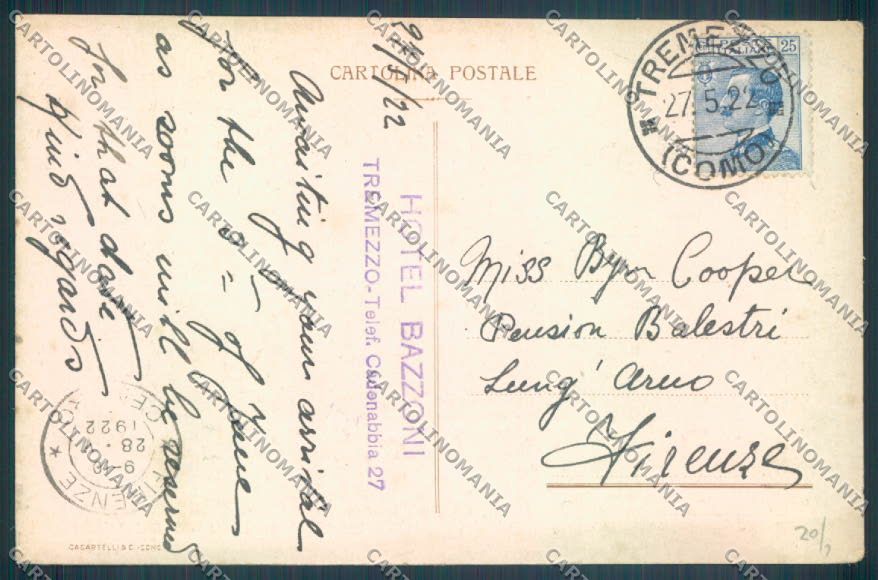 CARTOLINA POSTALE
27/5/22
Awaiting your arrival
for the 5th of June
as rooms will be reserved
for that date.
Kind regards
HOTEL BAZZONI
TREMEZZO.-Telef. Cadenabbia 27
TREMEZZO
27.5.22
(COMO)
25
Miss Byor Cooper
Pension Balestri
Lung' Arno
Firenze
FIRENZE
28
1922
CACARTELLI & C. - COMO
20/
CARTOLINOMANIA